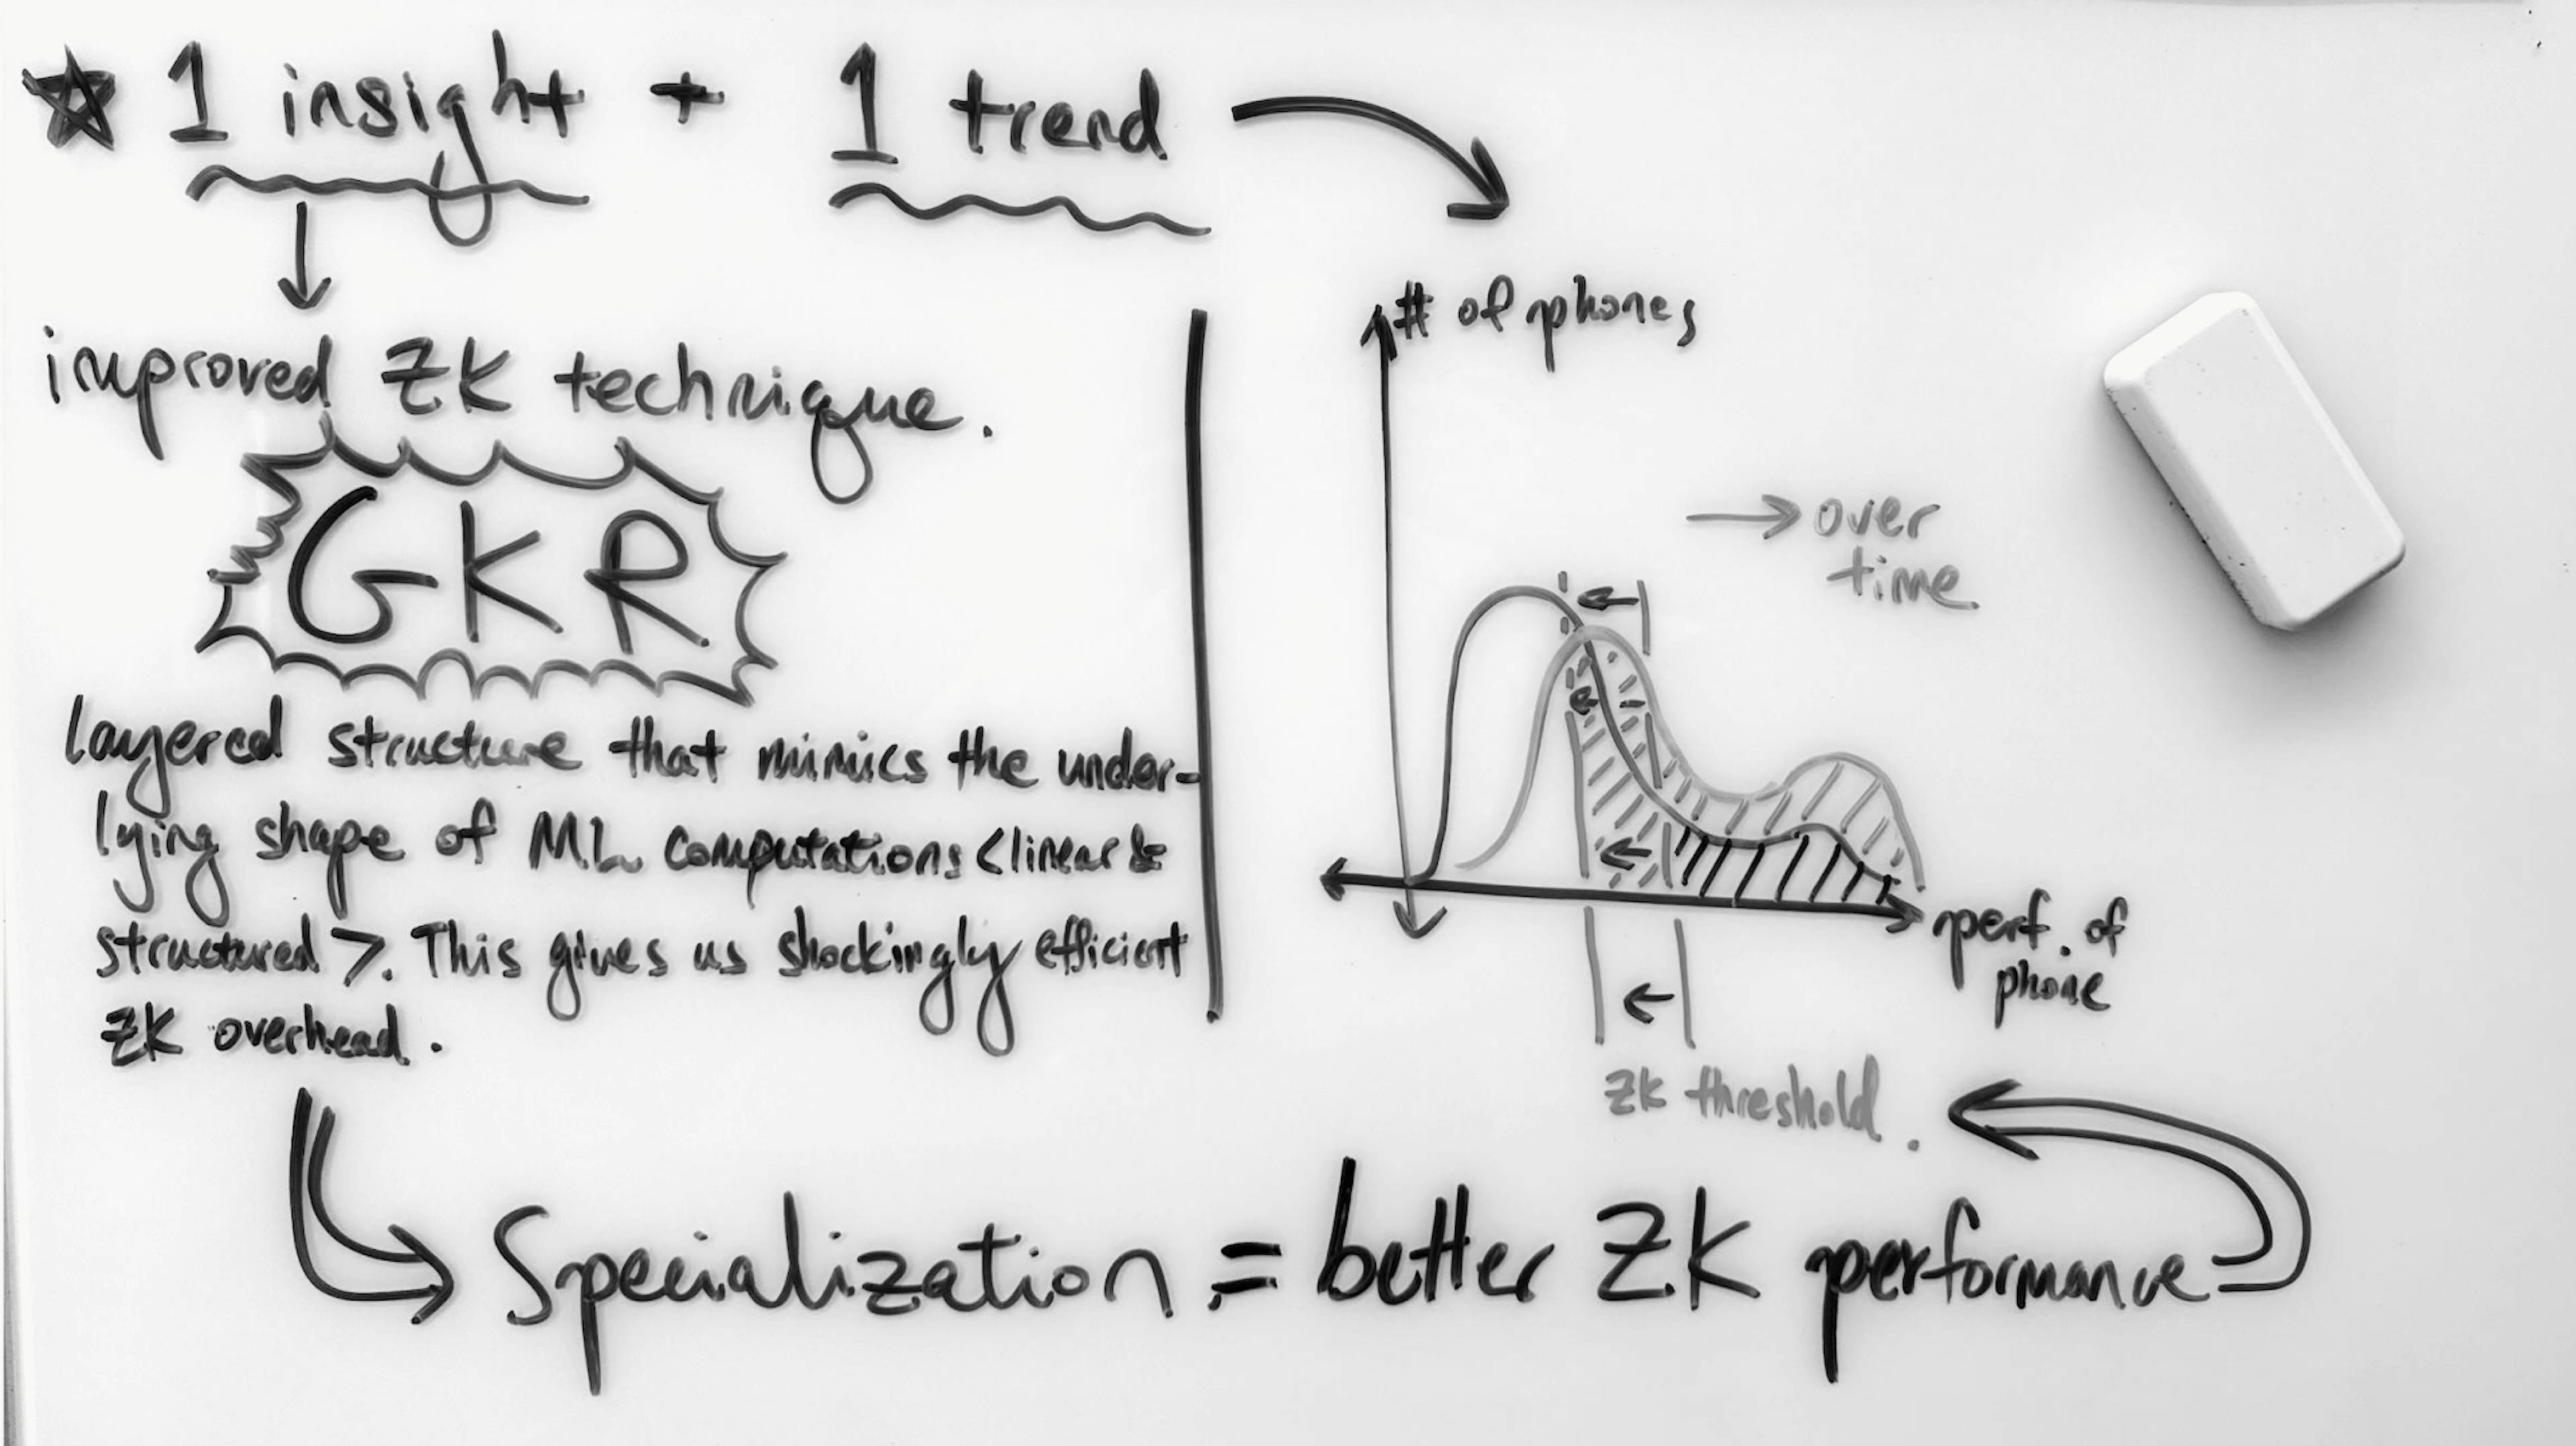 ☆ 1 insight + 1 trend
improved ZK technique.
GKR
layered structure that mimics the under-
lying shape of ML computations <linear &
structured>. This gives us shockingly efficient
ZK overhead.
# of phones
→ over
time
perf. of
phone
ZK threshold.
Specialization = better ZK performance